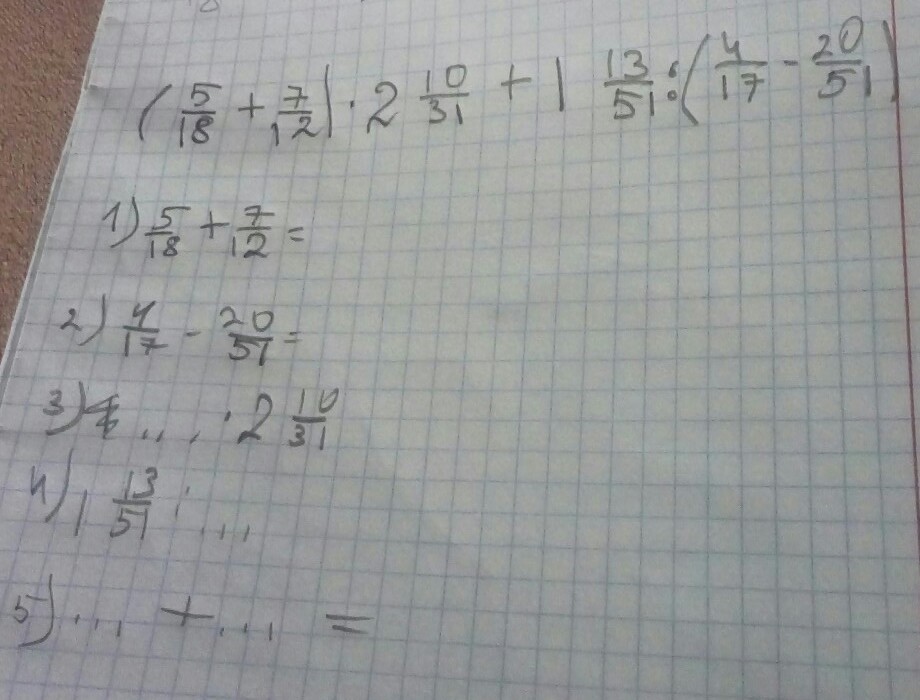 (5/18 + 7/12) · 2 10/31 + 1 13/51 : (4/17 - 20/51)
1) 5/18 + 7/12 =
2) 4/17 - 20/51 =
3) ... · 2 10/31
4) 1 13/51 : ...
5) ... + ... =